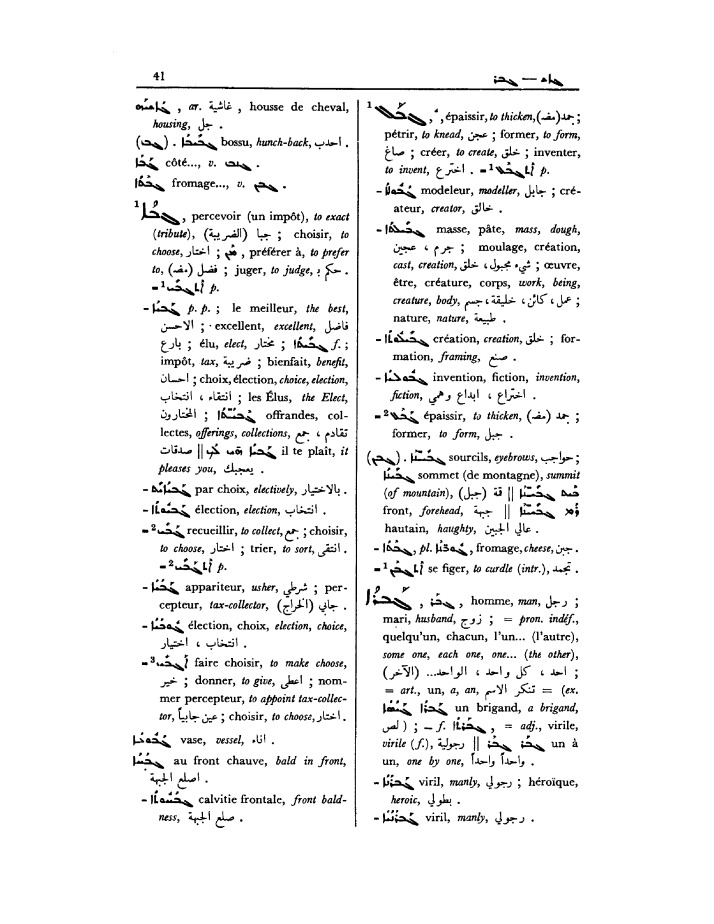 41
, ar. غاشية , housse de cheval,
housing, جل .
ܓܒ) . ܓܒܝܒܐ) bossu, hunch-back, احدب .
ܓܒܐ côté..., v. ܓܢܒ .
ܓܒܬܐ fromage..., v. ܓܒܢ .
1 ܓܒܐ, percevoir (un impôt), to exact
(tribute), جبا (الضريبة) ; choisir, to
choose, اختار ; , préférer à, to prefer
to, فضل (مف) ; juger, to judge, حكم .
= 1 ܐܬܓܒܝ p.
- ܓܒܝܐ p. p. ; le meilleur, the best,
الاحسن ; excellent, excellent, فاضل
بارع ; élu, elect, مختار ; ܓܒܝܬܐ f. ;
impôt, tax, ضريبة ; bienfait, benefit,
احسان ; choix, élection, choice, election,
انتقاء ، انتخاب ; les Élus, the Elect,
المختارون ; offrandes, col-
lectes, offerings, collections, تقادم ، جمع
صدقات || il te plaît, it
pleases you, يعجبك .
- ܓܒܝܐܝܬ par choix, electively, بالاختيار .
- ܓܒܝܘܬܐ élection, election, انتخاب .
= 2 ܓܒܝ recueillir, to collect, جمع ; choisir,
to choose, اختار ; trier, to sort, انتقى .
= 2 ܐܬܓܒܝ p.
- ܓܒܝܐ appariteur, usher, شرطي ; per-
cepteur, tax-collector, جابي (الخراج) .
- ܓܘܒܝܐ élection, choix, election, choice,
انتخاب ، اختيار .
= 3 ܐܓܒܝ faire choisir, to make choose,
خير ; donner, to give, اعطى ; nom-
mer percepteur, to appoint tax-collec-
tor, عين جابياً ; choisir, to choose, اختار .
vase, vessel, اناء .
ܓܒܚܐ au front chauve, bald in front,
اصلع الجبهة .
- ܓܒܝܚܘܬܐ calvitie frontale, front bald-
ness, صلع الجبهة .
1 ܓܒܠ , épaissir, to thicken, (مف) جمد ;
pétrir, to knead, عجن ; former, to form,
صاغ ; créer, to create, خلق ; inventer,
to invent, اخترع . = 1 ܐܬܓܒܠ p.
- ܓܒܘܠܐ modeleur, modeller, جابل ; cré-
ateur, creator, خالق .
- ܓܒܝܠܬܐ masse, pâte, mass, dough,
جرم ، عجين ; moulage, création,
cast, creation, شيء مجبول ، خلق ; œuvre,
être, créature, corps, work, being,
creature, body, عمل ، كائن ، خليقة ، جسم ;
nature, nature, طبيعة .
- ܓܒܝܠܘܬܐ création, creation, خلق ; for-
mation, framing, صنع .
- ܓܘܒܠܐ invention, fiction, invention,
fiction, اختراع ، ابداع وهمي .
= 2 ܓܒܠ épaissir, to thicken, جمد (مف) ;
former, to form, جبل .
ܓܒܢ) . ܓܒܝܢܐ) sourcils, eyebrows, حواجب ;
sommet (de montagne), summit
(of mountain), قة (جبل) ||
front, forehead, جبهة ||
hautain, haughty, عالي الجبين .
- ܓܒܬܐ, pl. , fromage, cheese, جبن .
= 1 ܐܬܓܒܢ se figer, to curdle (intr.), تجمد .
ܓܒܪܐ , ܓܒܪ , homme, man, رجل ;
mari, husband, زوج ; = pron. indéf.,
quelqu'un, chacun, l'un... (l'autre),
some one, each one, one... (the other),
احد ، كل واحد ، الواحد... (الآخر) ;
= art., un, a, an, تنكر الاسم = (ex.
un brigand, a brigand,
لص) ; – f. , = adj., virile,
virile (f.), رجولية || ܓܒܪ ܓܒܪ un à
un, one by one, واحداً واحداً .
- ܓܒܪܝܐ viril, manly, رجولي ; héroïque,
heroic, بطولي .
- ܓܒܪܢܝܐ viril, manly, رجولي .